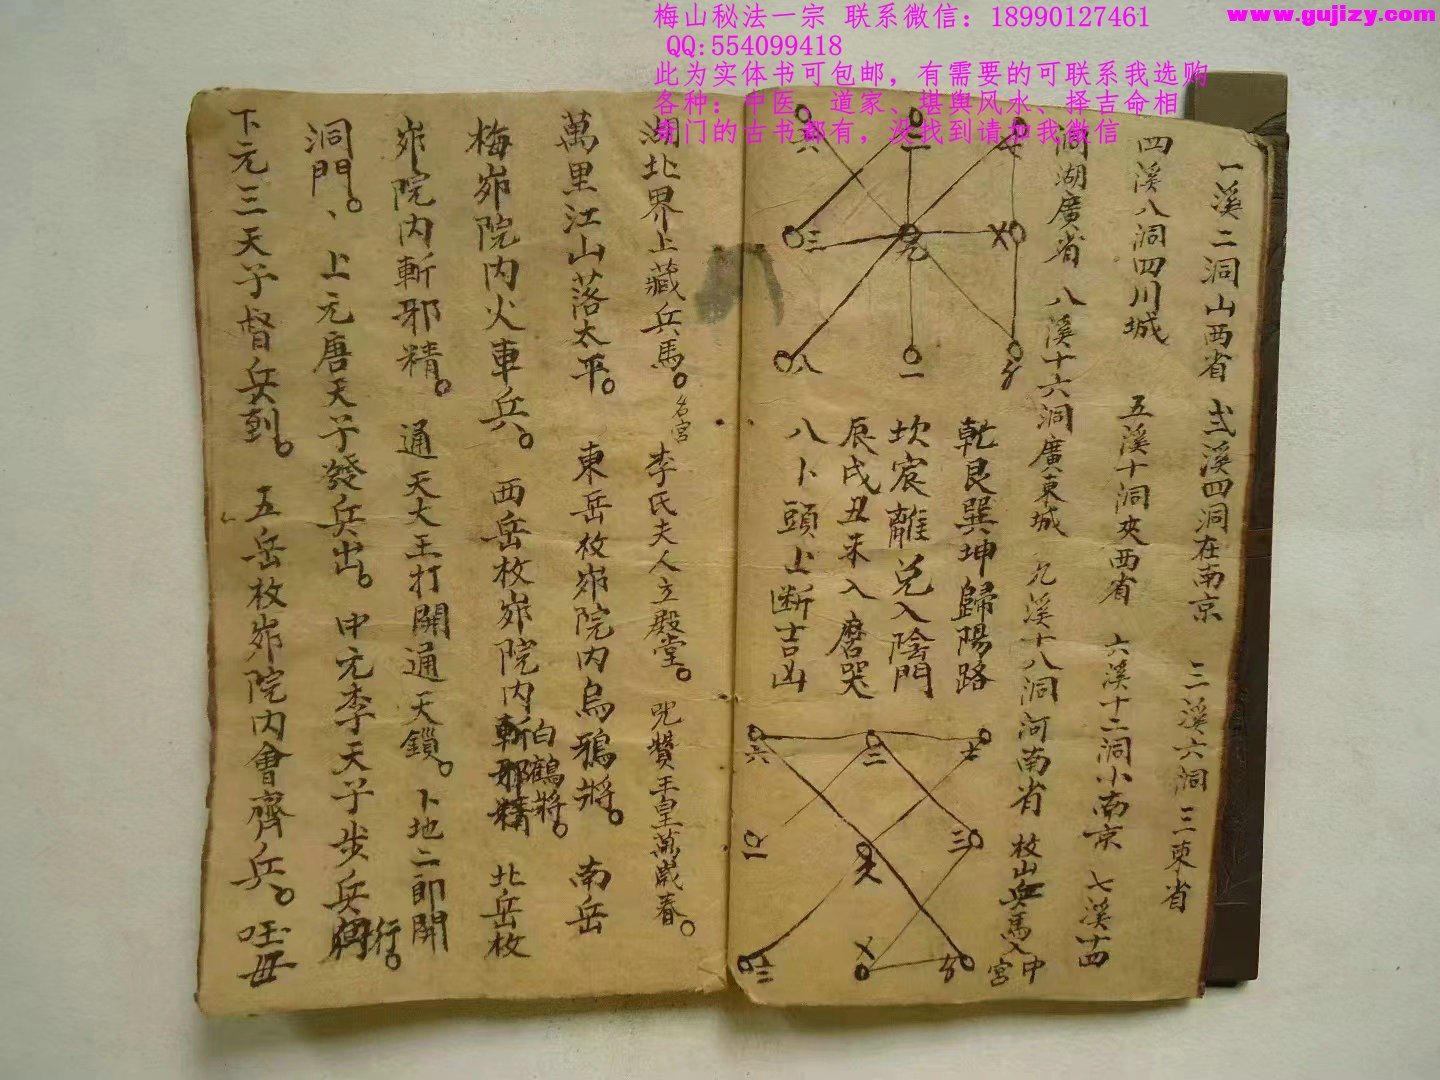 梅山秘法一宗 联系微信：18990127461
QQ:554099418
此为实体书可包邮，有需要的可联系我选购
各种：中医、道家、堪舆风水、择吉命相
奇门的古书都有，没找到请加我微信
www.gujizy.com
一溪二洞山西省 弍溪四洞在南京 三溪六洞三東省
四溪八洞四川城 五溪十洞夾西省 六溪十二洞小南京 七溪十四
洞湖廣省 八溪十六洞廣東城 九溪十八洞河南省 枚山兵馬入中宮
六 二 七
三
八 一
乾艮巽坤歸陽路
坎宸離兌入陰門
辰戌丑未入磨哭
八卜頭上断吉凶
六 二 七
一 三
湖北界上藏兵馬。名宮 李氏夫人立殿堂。咒贊王皇萬歲春。
萬里江山落太平。 東岳枚峁院内烏鴉將。 南岳
梅峁院内火車兵。 西岳枚峁院内斬邪精白鶴將。 北岳枚
峁院内斬邪精。 通天大王打開通天鎖。 卜地二郎開
洞門。、上元唐天子發兵出。 中元李天子步兵行。
下元三天子督兵到。 五岳枚峁院内會齊兵。